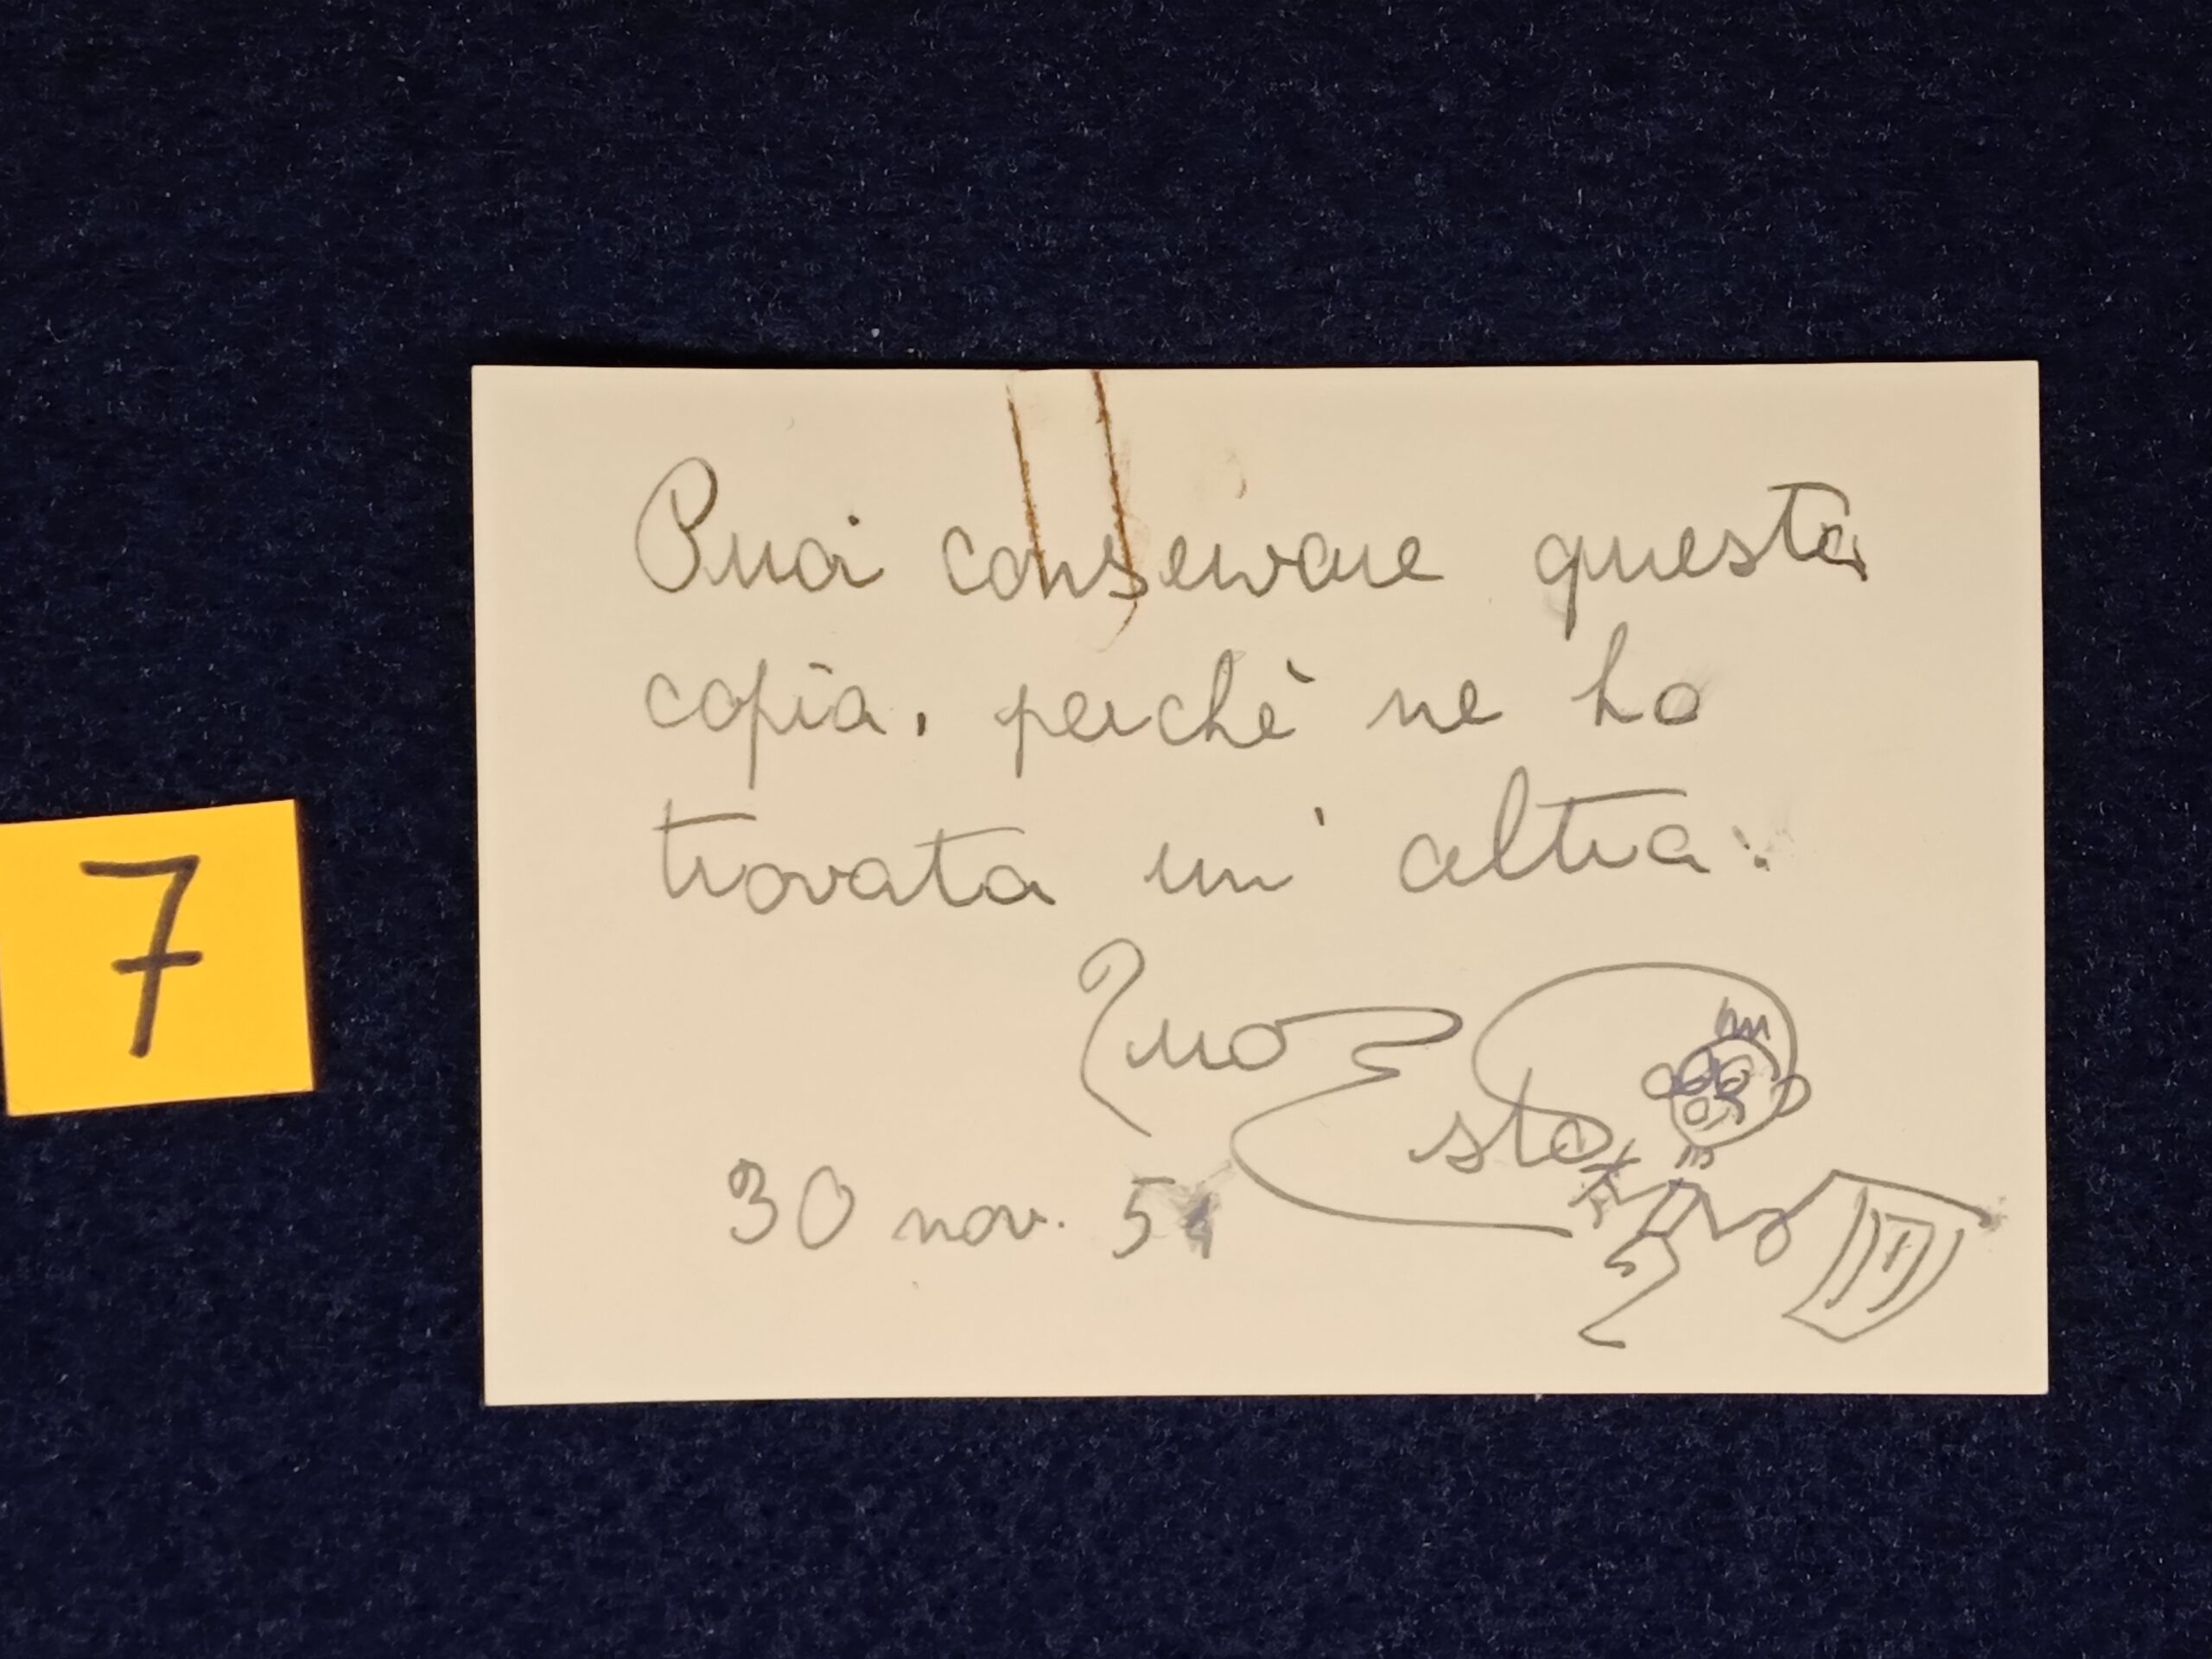 7
Puoi conservare questa
copia, perchè ne ho
trovata un' altra.
30 nov. 51